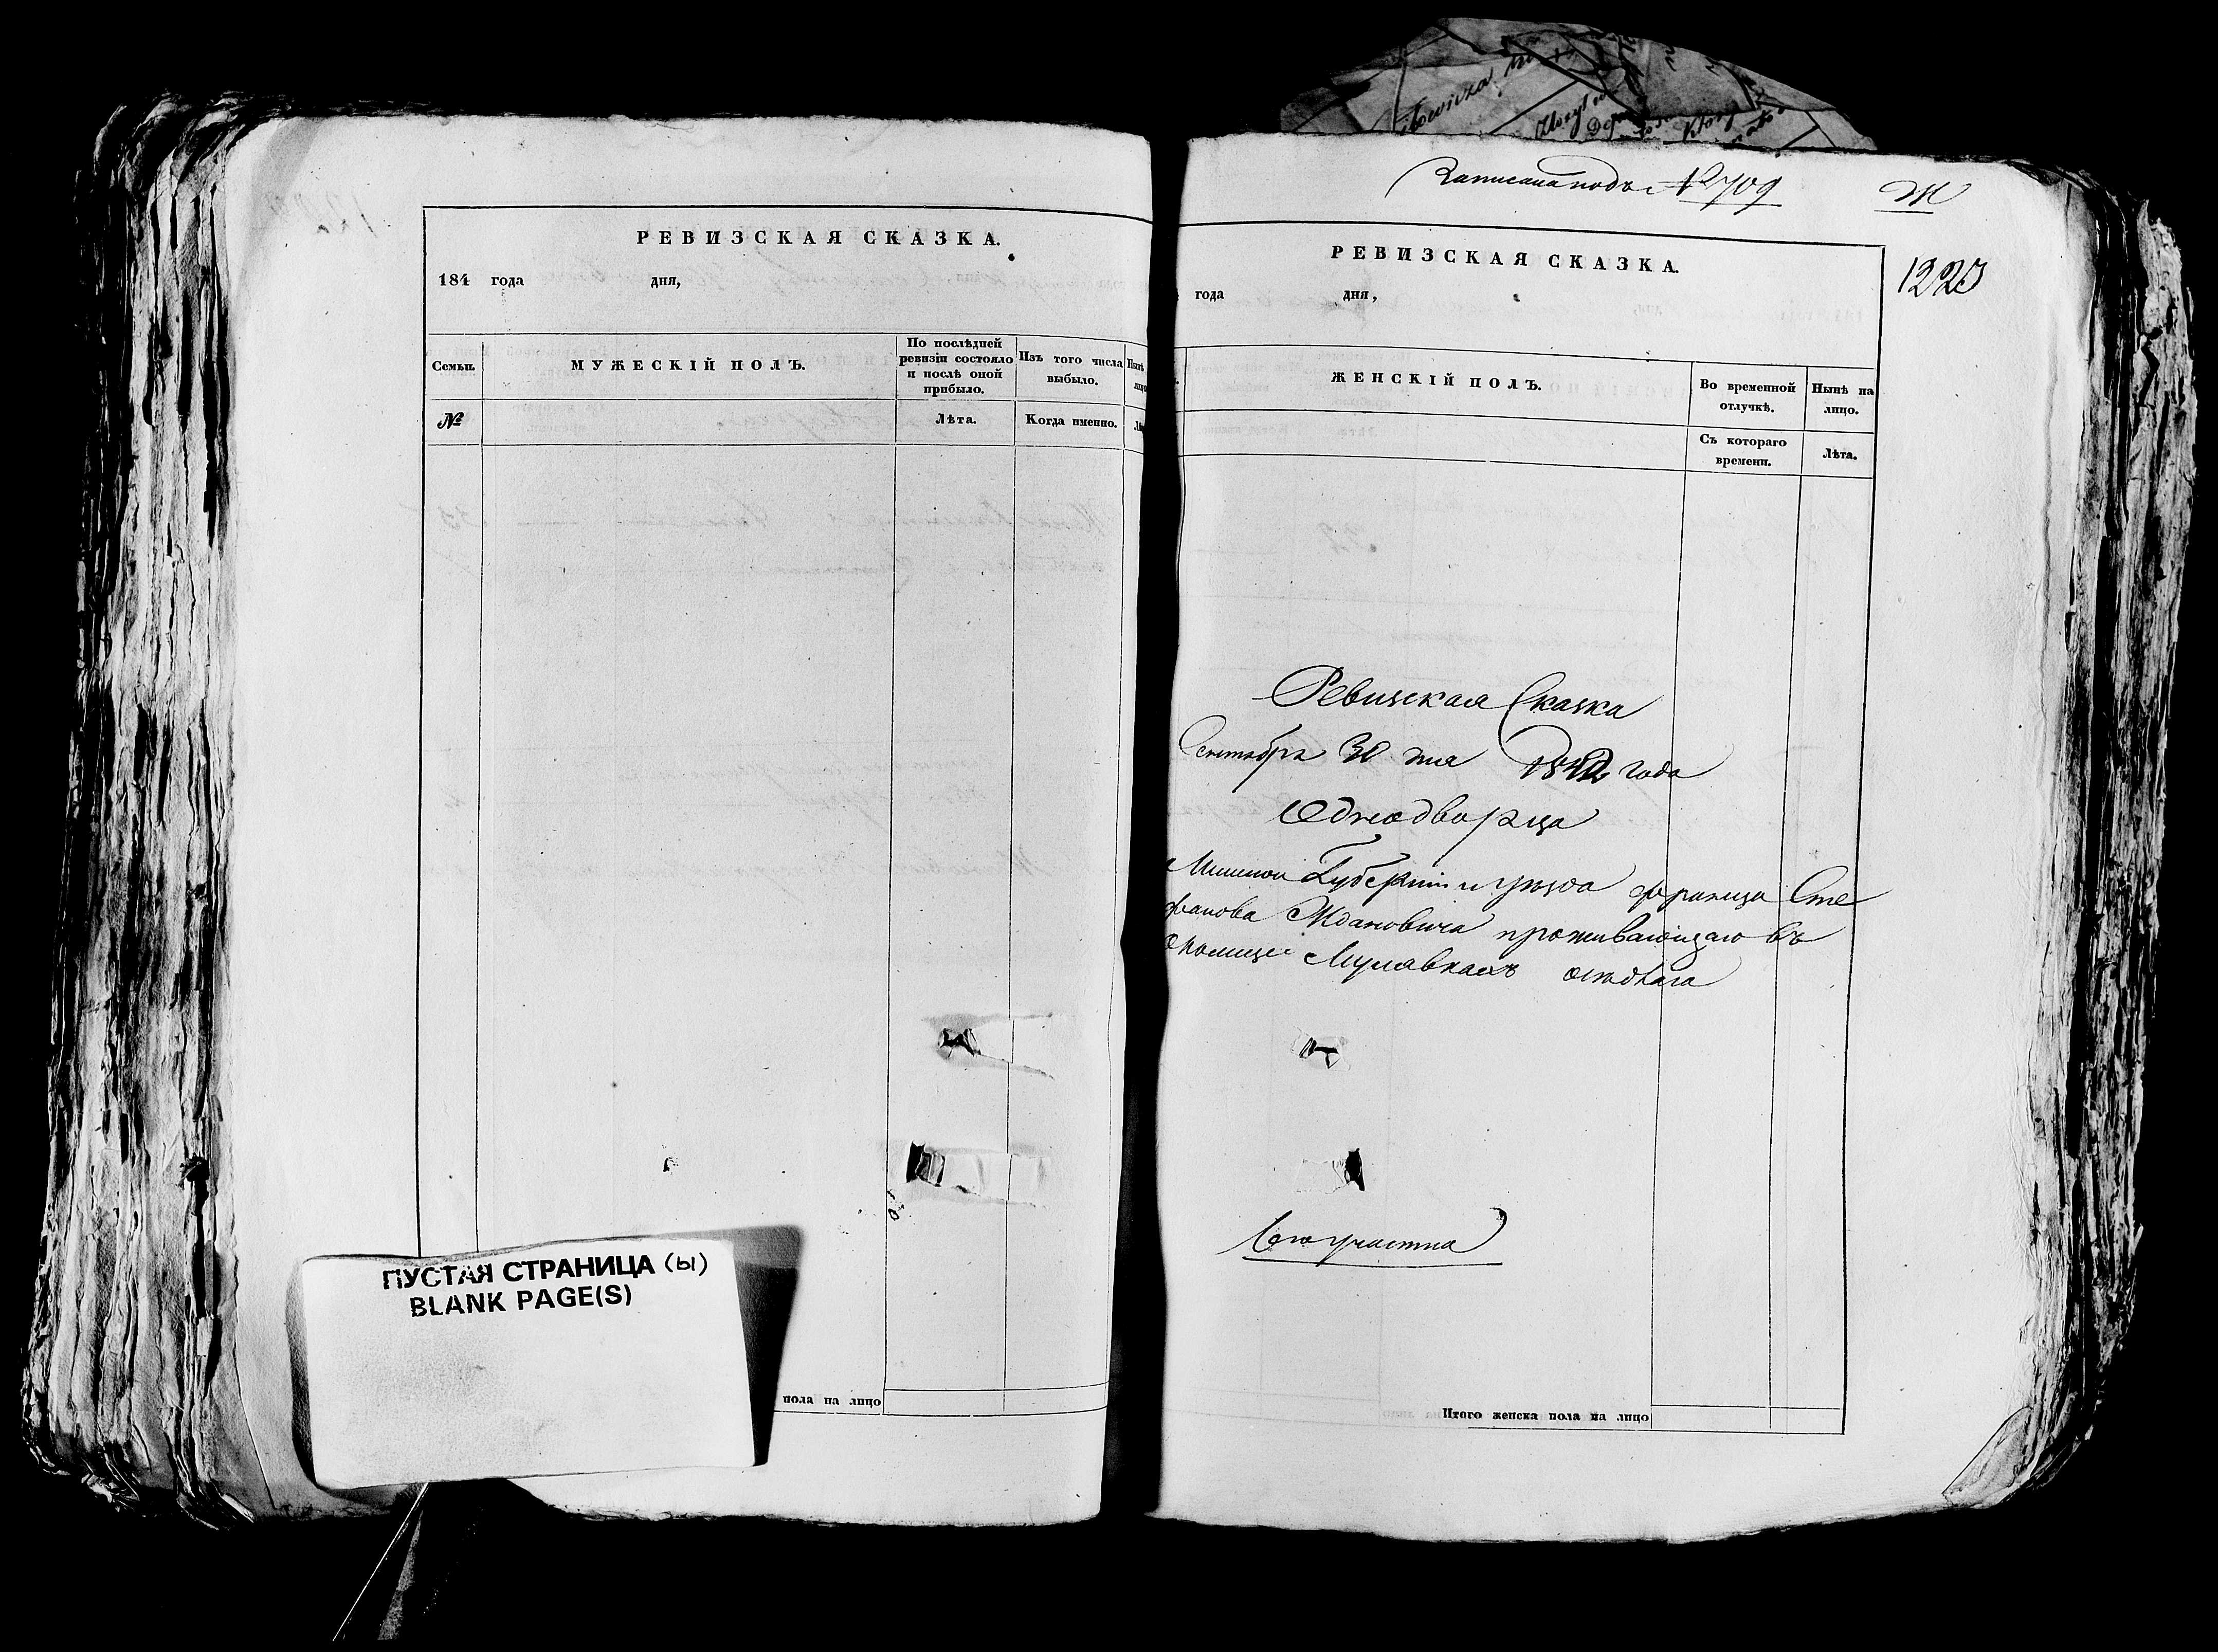 РЕВИЗСКАЯ СКАЗКА.
184 года дня,
Семьи.
МУЖЕСКІЙ ПОЛЪ.
По послѣдней ревизіи состояло и послѣ оной прибыло.
Изъ того числа выбыло.
№
Лѣта.
Когда именно.
пола на лицо
ПУСТАЯ СТРАНИЦА (ы)
BLANK PAGE(S)
Записана подъ № 709
Ж
1223
РЕВИЗСКАЯ СКАЗКА.
года дня,
ЖЕНСКІЙ ПОЛЪ.
Во временной отлучкѣ.
Нынѣ на лицо.
Съ котораго времени.
Лѣта.
Ревизская Сказка
Сентября 30 дня года
Однодворца
Минской Губерніи и уѣзда Франца Сте
фанова Ждановича проживающаго въ
околице осѣдлаго
Итого женска пола на лицо